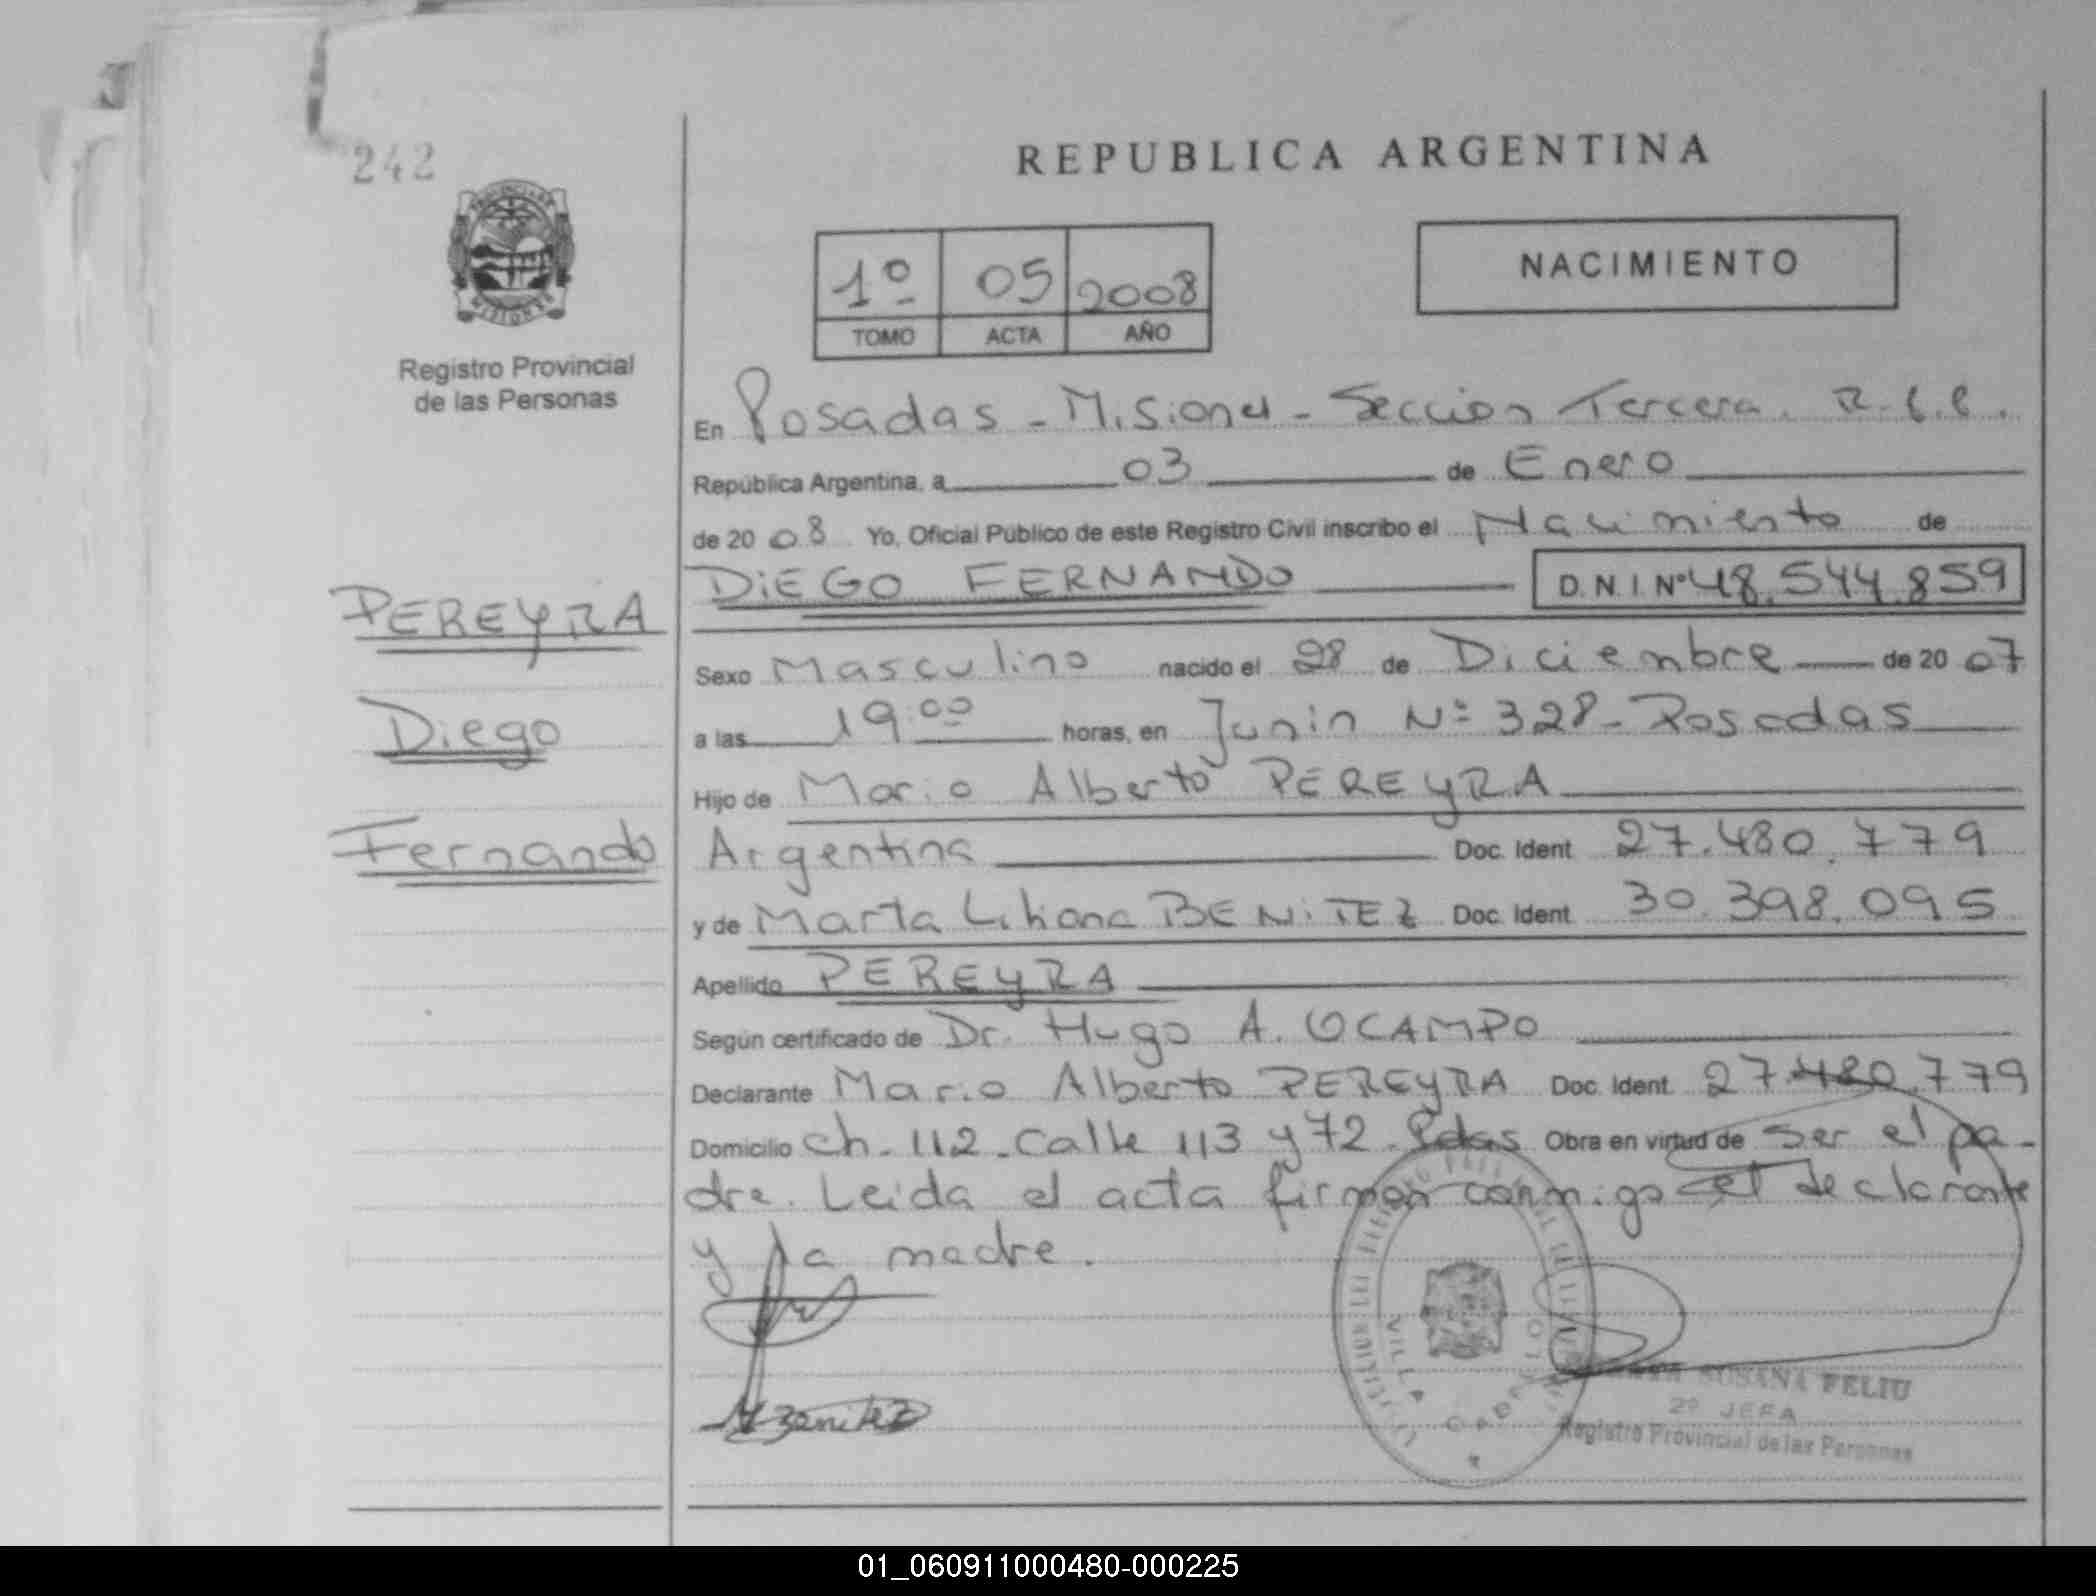 242
REPUBLICA ARGENTINA
PROVINCIA DE
MISIONES
Registro Provincial
de las Personas
1º 05 2008
TOMO ACTA AÑO
NACIMIENTO
En Posadas - Misiones - Seccion Tercera.
República Argentina, a 03 de Enero
de 2008 Yo, Oficial Público de este Registro Civil inscribo el Nacimiento de
DiEGO FERNANDO D.N.I.Nº 48.544.859
PEREYRA
Diego
Fernando
Sexo Masculino nacido el 28 de Diciembre de 2007
a las 19:00 horas, en Junin Nº 328 - Posadas
Hijo de Mario Alberto PEREYRA
Argentina Doc. Ident 27.480.779
y de Marta Liliana BENiTEZ Doc. Ident 30.398.095
Apellido PEREYRA
Según certificado de Dr. Hugo A. OCAMPO
Declarante Mario Alberto PEREYRA Doc. Ident. 27.480.779
Domicilio Ch. 112 - Calle 113 y 72 - Pdas Obra en virtud de ser el pa-
dre. Leida el acta firman conmigo el declarante
y la madre.
Benitez
VILLA CABELLO
SUSANA FELIU
2º JEFA
Registro Provincial de las Personas
01_060911000480-000225